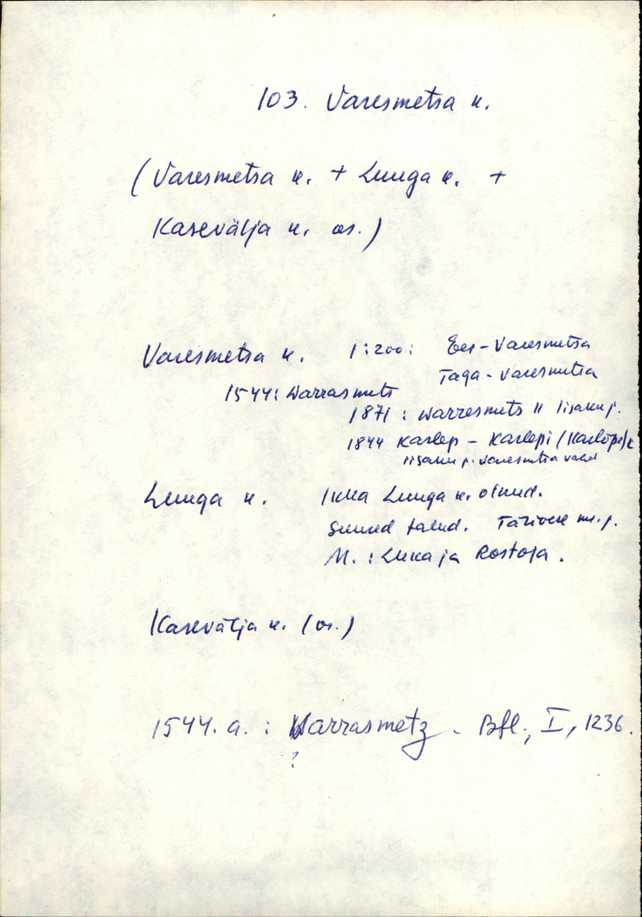 103. Varesmetsa k.
(Varesmetsa k. + Luuga k. +
Kasevälja k. os.)
Varesmetsa k. 1:200: Ees-Varesmetsa
Taga-Varesmetsa
1544: Warrasmets
1871: Warresmets " Iisaku j.
1844 Karlep - Karlepi
Iisaku j. Varesmetsa vald
Luuga k. Ikka Luuga k. olnud.
Suured talud.
M.: Luka ja Rostoja.
Kasevälja k. (os.)
1544. a.: Warrasmetz - Bfl., I, 1236.
?